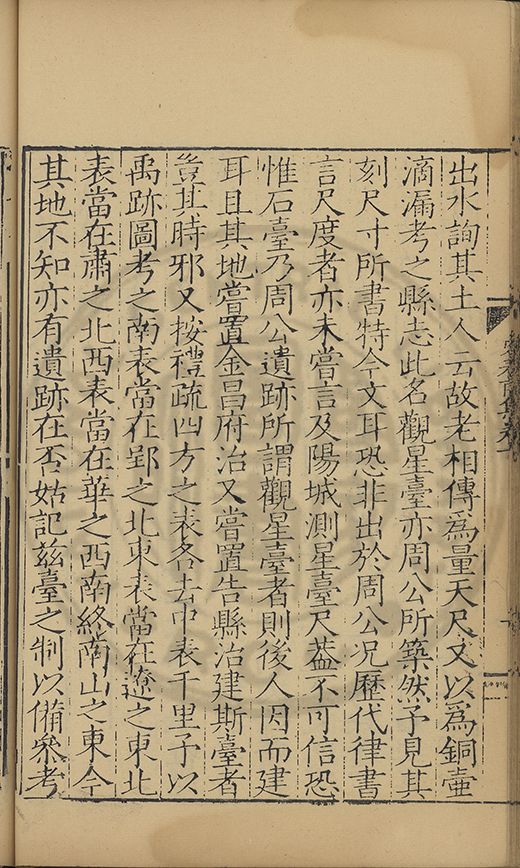 出水詢其土人云故老相傳爲量天尺又以爲銅壷
滴漏考之縣志此名觀星臺亦周公所築然予見其
刻尺寸所書特今文耳恐非出於周公况歷代律書
言尺度者亦未嘗言及陽城測星臺尺葢不可信恐
惟石臺乃周公遺跡所謂觀星臺者則後人因而建
耳且其地嘗置金昌府治又嘗置告縣治建斯臺者
豈其時邪又按禮疏四方之表各去中表千里予以
禹跡圖考之南表當在郢之北東表當在遼之東北
表當在肅之北西表當在華之西南終南山之東今
其地不知亦有遺跡在否姑記兹臺之制以備叅考